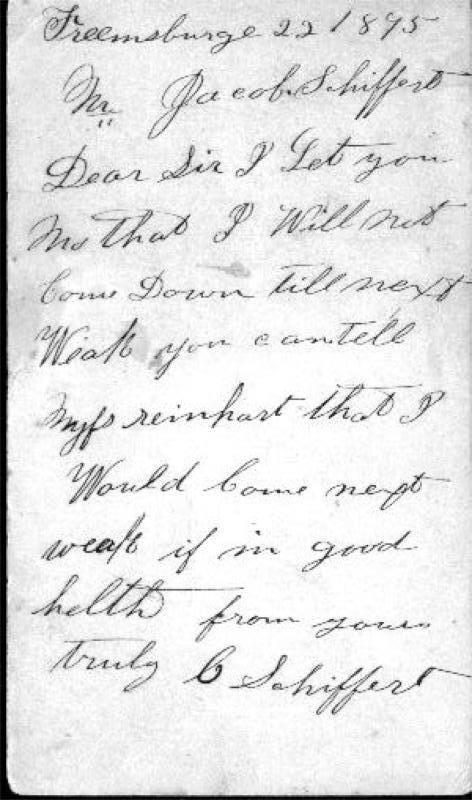 Freemsburge 22 1895
Mr Jacob Schiffert
Dear Sir I Let you
no that I Will not
Come Down till next
Weak you can tell
reinhart that I
Would Come next
weak if in good
helth from yours
truly C Schiffert